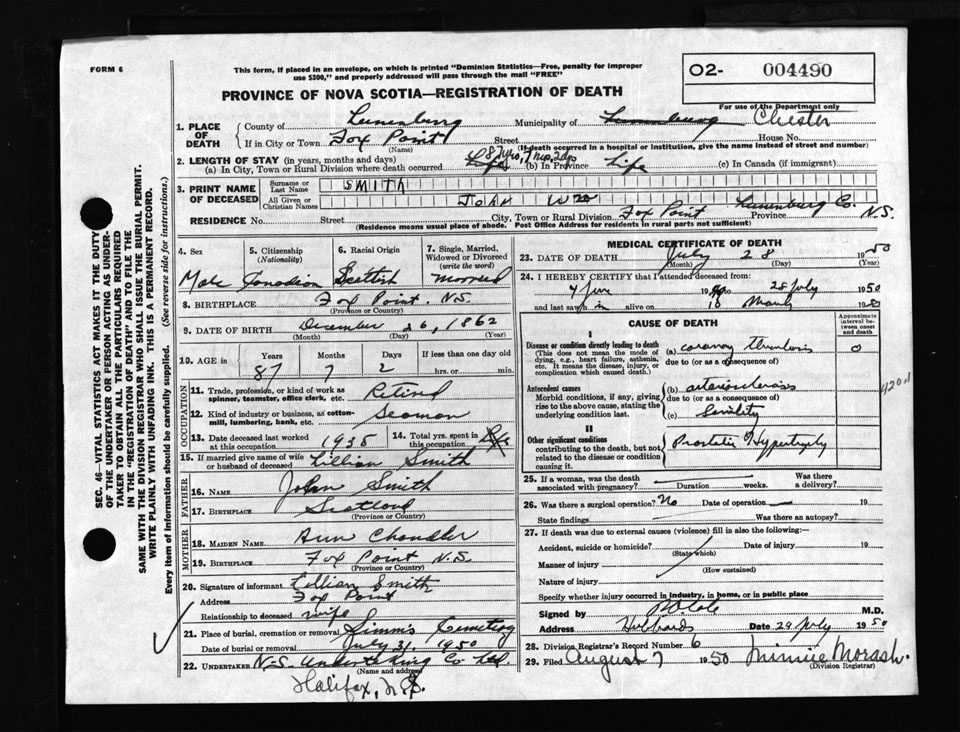 FORM 6
This form, if placed in an envelope, on which is printed "Dominion Statistics—Free, penalty for improper
use $300," and properly addressed will pass through the mail "FREE"
O2- 004490
For use of the Department only
PROVINCE OF NOVA SCOTIA—REGISTRATION OF DEATH
SEC. 46—VITAL STATISTICS ACT MAKES IT THE DUTY
OF THE UNDERTAKER OR PERSON ACTING AS UNDER-
TAKER TO OBTAIN ALL THE PARTICULARS REQUIRED
IN THE "REGISTRATION OF DEATH" AND TO FILE THE
SAME WITH THE DIVISION REGISTRAR WHO SHALL ISSUE THE BURIAL PERMIT.
WRITE PLAINLY WITH UNFADING INK. THIS IS A PERMANENT RECORD.
Every item of Information should be carefully supplied. (See reverse side for instructions.)
1. PLACE OF DEATH
County of Lunenburg Municipality of Lunenburg Chester
If in City or Town Fox Point Street House No.
(Name) (If death occurred in a hospital or institution, give the name instead of street and number)
2. LENGTH OF STAY (in years, months and days)
(a) In City, Town or Rural Division where death occurred Life 87 yrs, 7 mos, 2 dys (b) In Province Life (c) In Canada (if immigrant)
3. PRINT NAME OF DECEASED
Surname or Last Name SMITH
All Given or Christian Names JOHN Wm
RESIDENCE No. Street City, Town or Rural Division Fox Point Lunenburg Co. Province N.S.
(Residence means usual place of abode. Post Office Address for residents in rural parts not sufficient)
4. Sex
Male
5. Citizenship (Nationality)
Canadian
6. Racial Origin
Scottish
7. Single, Married, Widowed or Divorced (write the word)
Married
8. BIRTHPLACE Fox Point. N.S.
(Province or Country)
9. DATE OF BIRTH December 26, 1862
(Month) (Day) (Year)
10. AGE in Years Months Days If less than one day old
87 7 2 hrs. or min.
OCCUPATION
11. Trade, profession, or kind of work as spinner, teamster, office clerk, etc. Retired
12. Kind of industry or business, as cotton-mill, lumbering, bank, etc. Seaman
13. Date deceased last worked at this occupation 1935
14. Total yrs. spent in this occupation Life
15. If married give name of wife or husband of deceased Lillian Smith
FATHER
16. NAME John Smith
17. BIRTHPLACE Scotland
(Province or Country)
MOTHER
18. MAIDEN NAME Ann Chandler
19. BIRTHPLACE Fox Point N.S.
(Province or Country)
20. Signature of informant Lillian Smith
Address Fox Point
Relationship to deceased wife
21. Place of burial, cremation or removal Simm's Cemetery
Date of burial or removal July 31, 1950
22. UNDERTAKER N.S. Undertaking Co Ltd.
(Name and address)
Halifax, N.S.
MEDICAL CERTIFICATE OF DEATH
23. DATE OF DEATH July 28 1950
(Month) (Day) (Year)
24. I HEREBY CERTIFY that I attended deceased from:
to 28 July 1950
and last saw h im alive on 18 March 1950
CAUSE OF DEATH
Approximate interval between onset and death
I
Disease or condition directly leading to death
(This does not mean the mode of dying, e.g., heart failure, asthenia, etc. It means the disease, injury, or complication which caused death.)
(a) coronary thrombosis 0
due to (or as a consequence of)
Antecedent causes
Morbid conditions, if any, giving rise to the above cause, stating the underlying condition last.
(b) arteriosclerosis
due to (or as a consequence of)
(c) Senility
420.1
II
Other significant conditions
contributing to the death, but not related to the disease or condition causing it.
Prostatic Hypertrophy
25. If a woman, was the death associated with pregnancy? Duration weeks. Was there a delivery?
26. Was there surgical operation? No Date of operation — 19
State findings Was there an autopsy?
27. If death was due to external causes (violence) fill in also the following:—
Accident, suicide or homicide? Date of injury 19
(State which)
Manner of injury
(How sustained)
Nature of injury
Specify whether injury occurred in industry, in home, or in public place
Signed by M.D.
Address Hubbards Date 29 July 1950
28. Division Registrar's Record Number 6
29. Filed August 7 1950 Minnie Morash.
(Division Registrar)